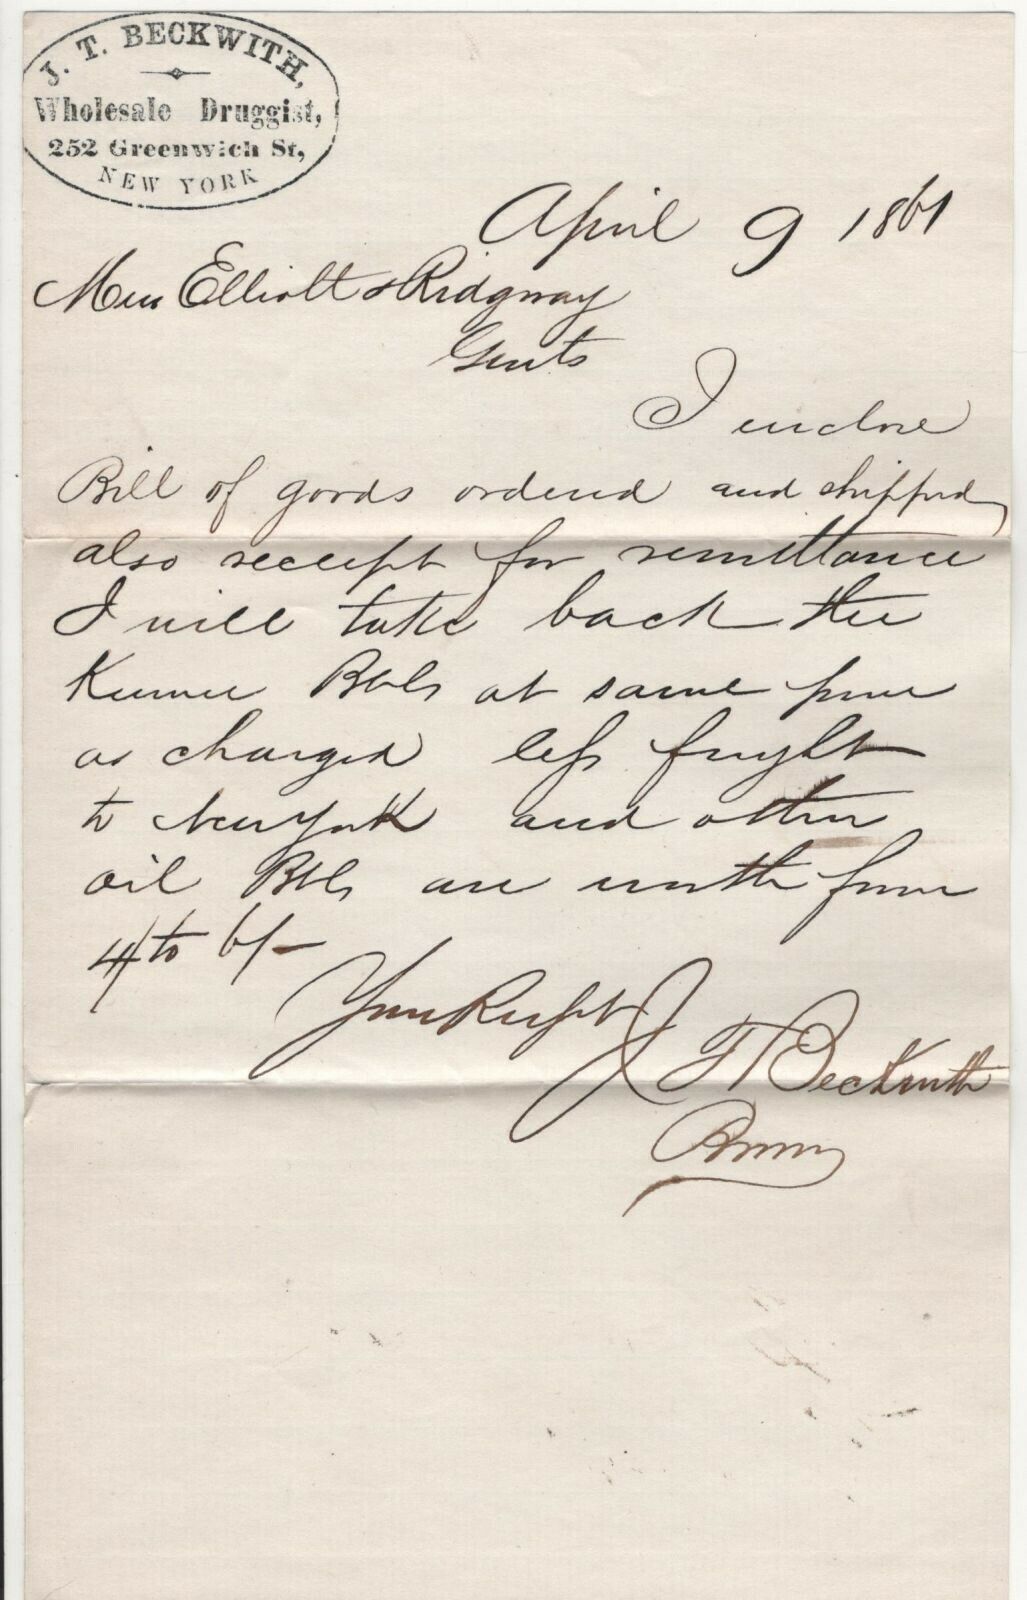 J. T. BECKWITH,
Wholesale Druggist,
252 Greenwich St,
NEW YORK
April 9 1861
Mess Elliott & Ridgway
Gents
I enclose
Bill of goods ordered and shipped
also receipt for remittance
I will take back the
Bbls at same price
as charged less freight
to New York and other
oil Bbls are worth from
4/ to 6/-
Your Respt J T Beckwith